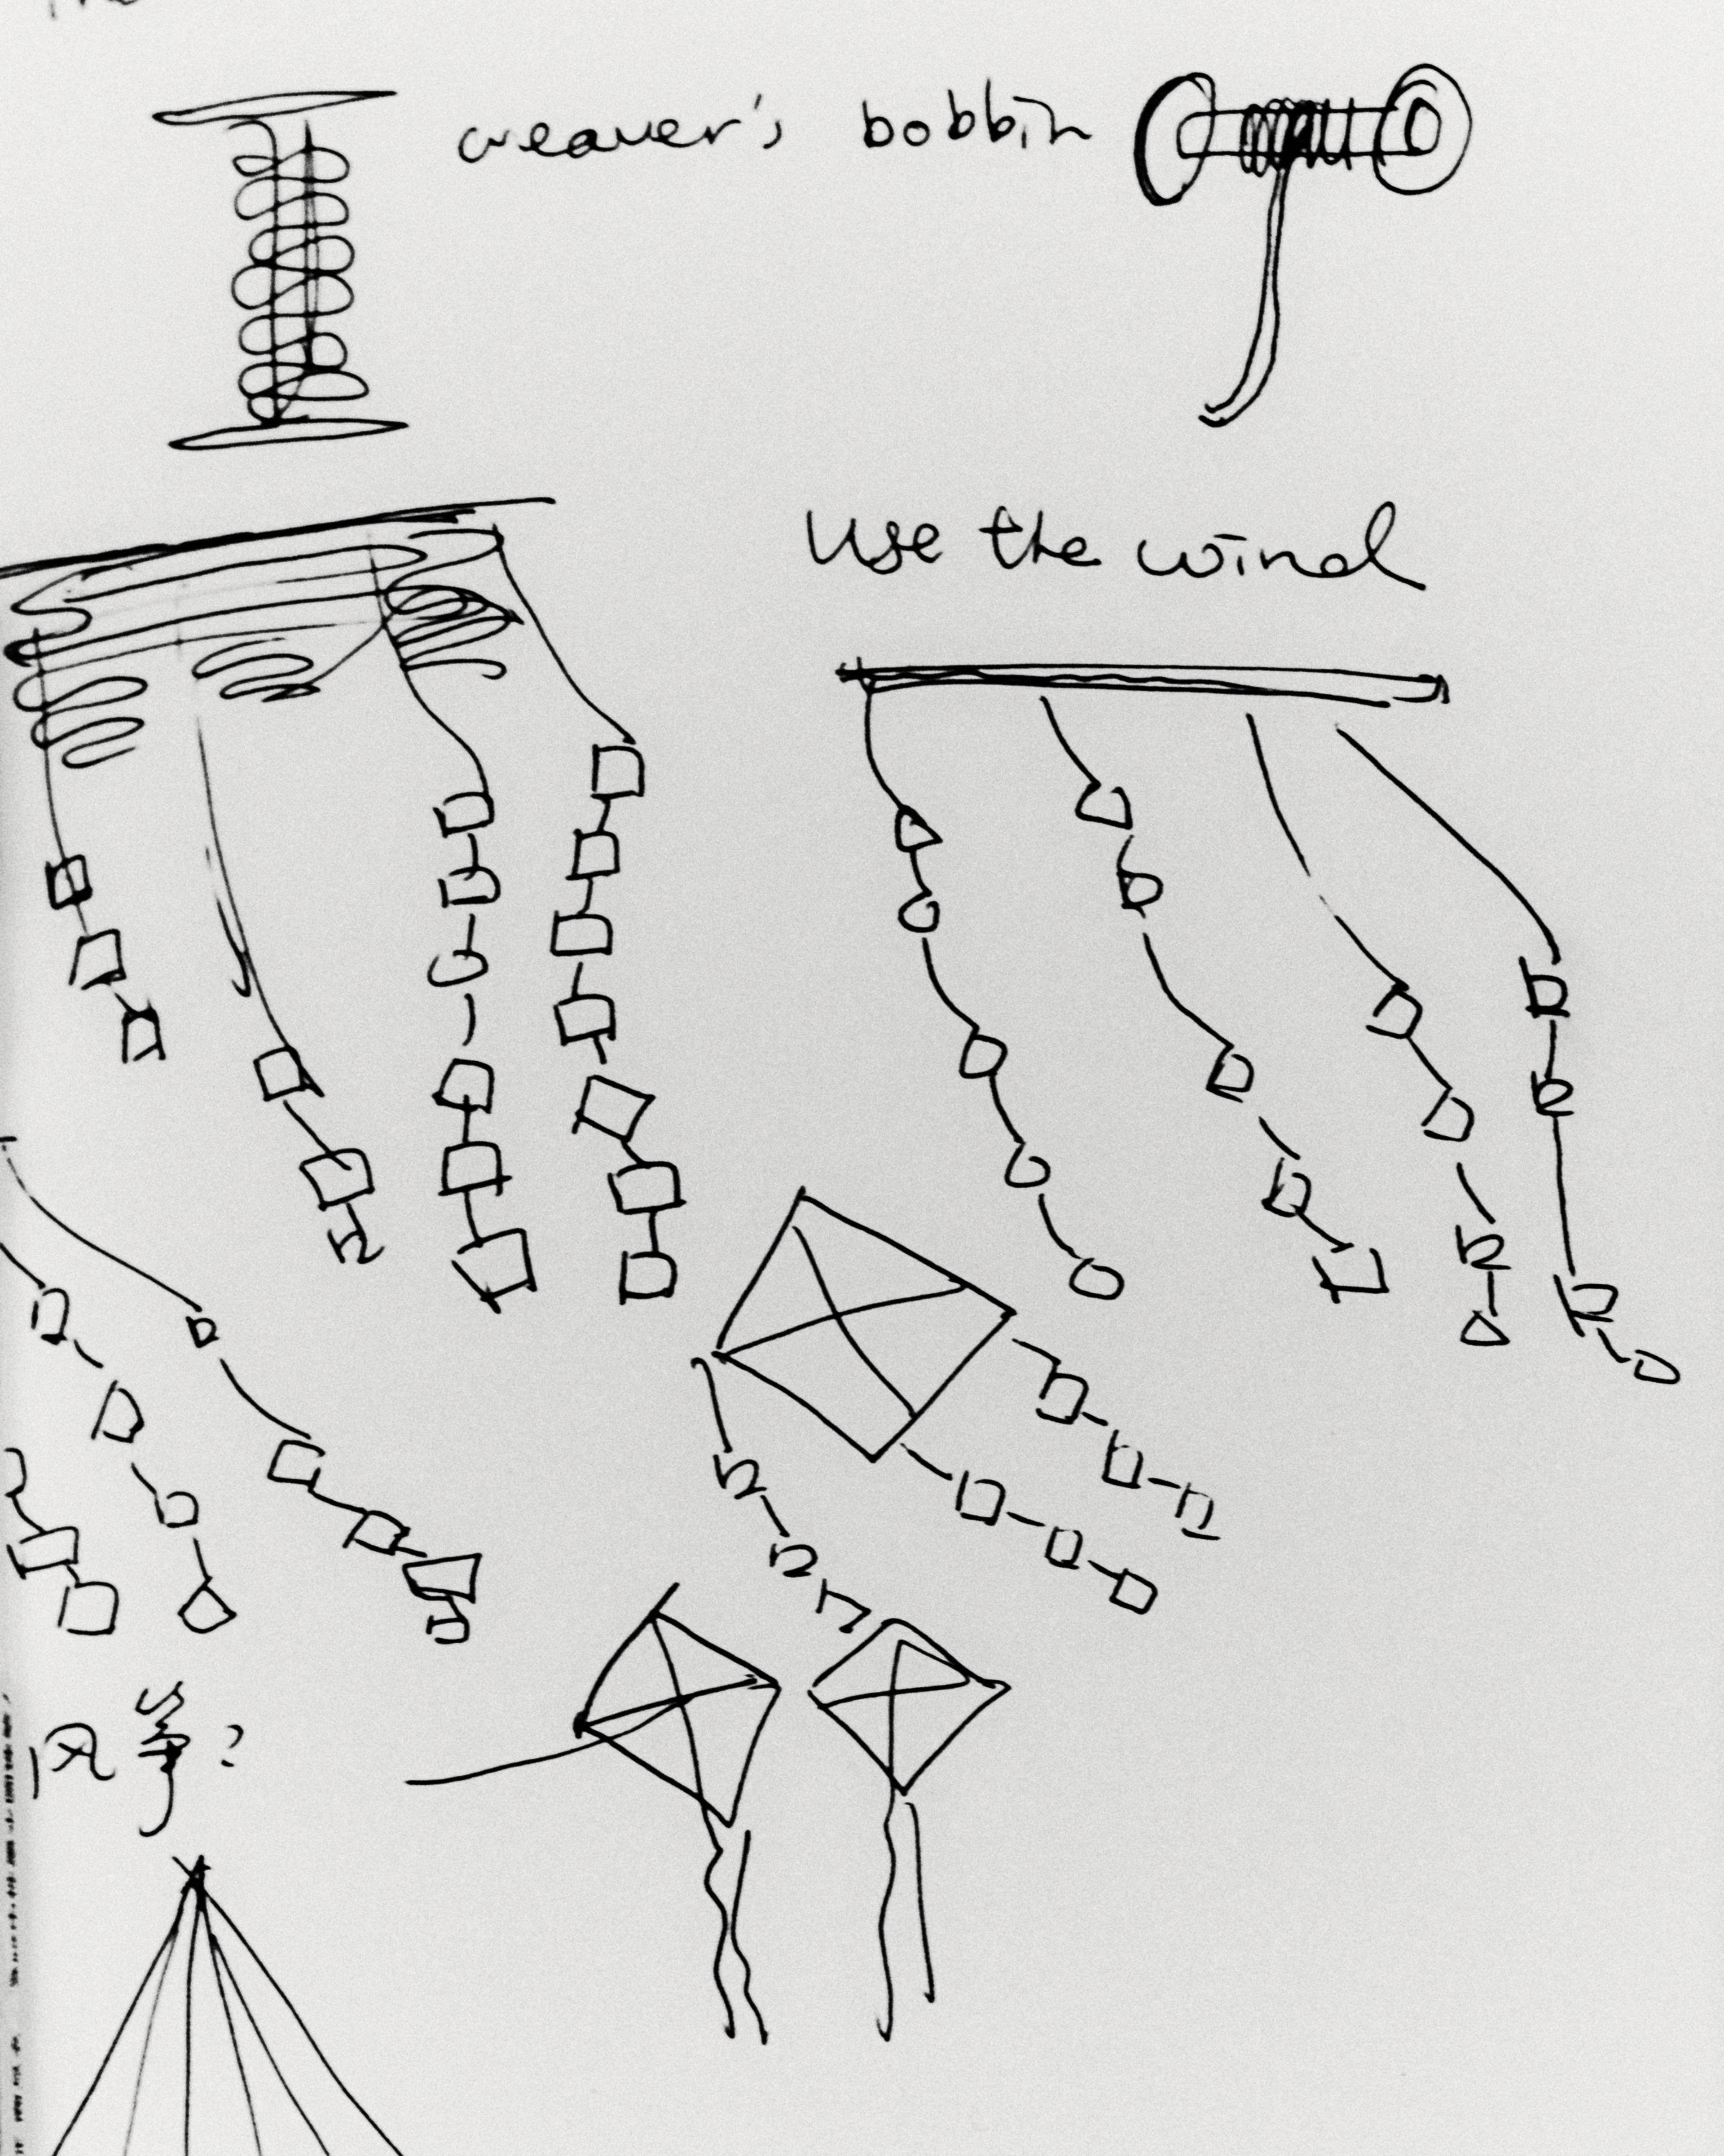 weaver's bobbin
Use the wind
风筝?